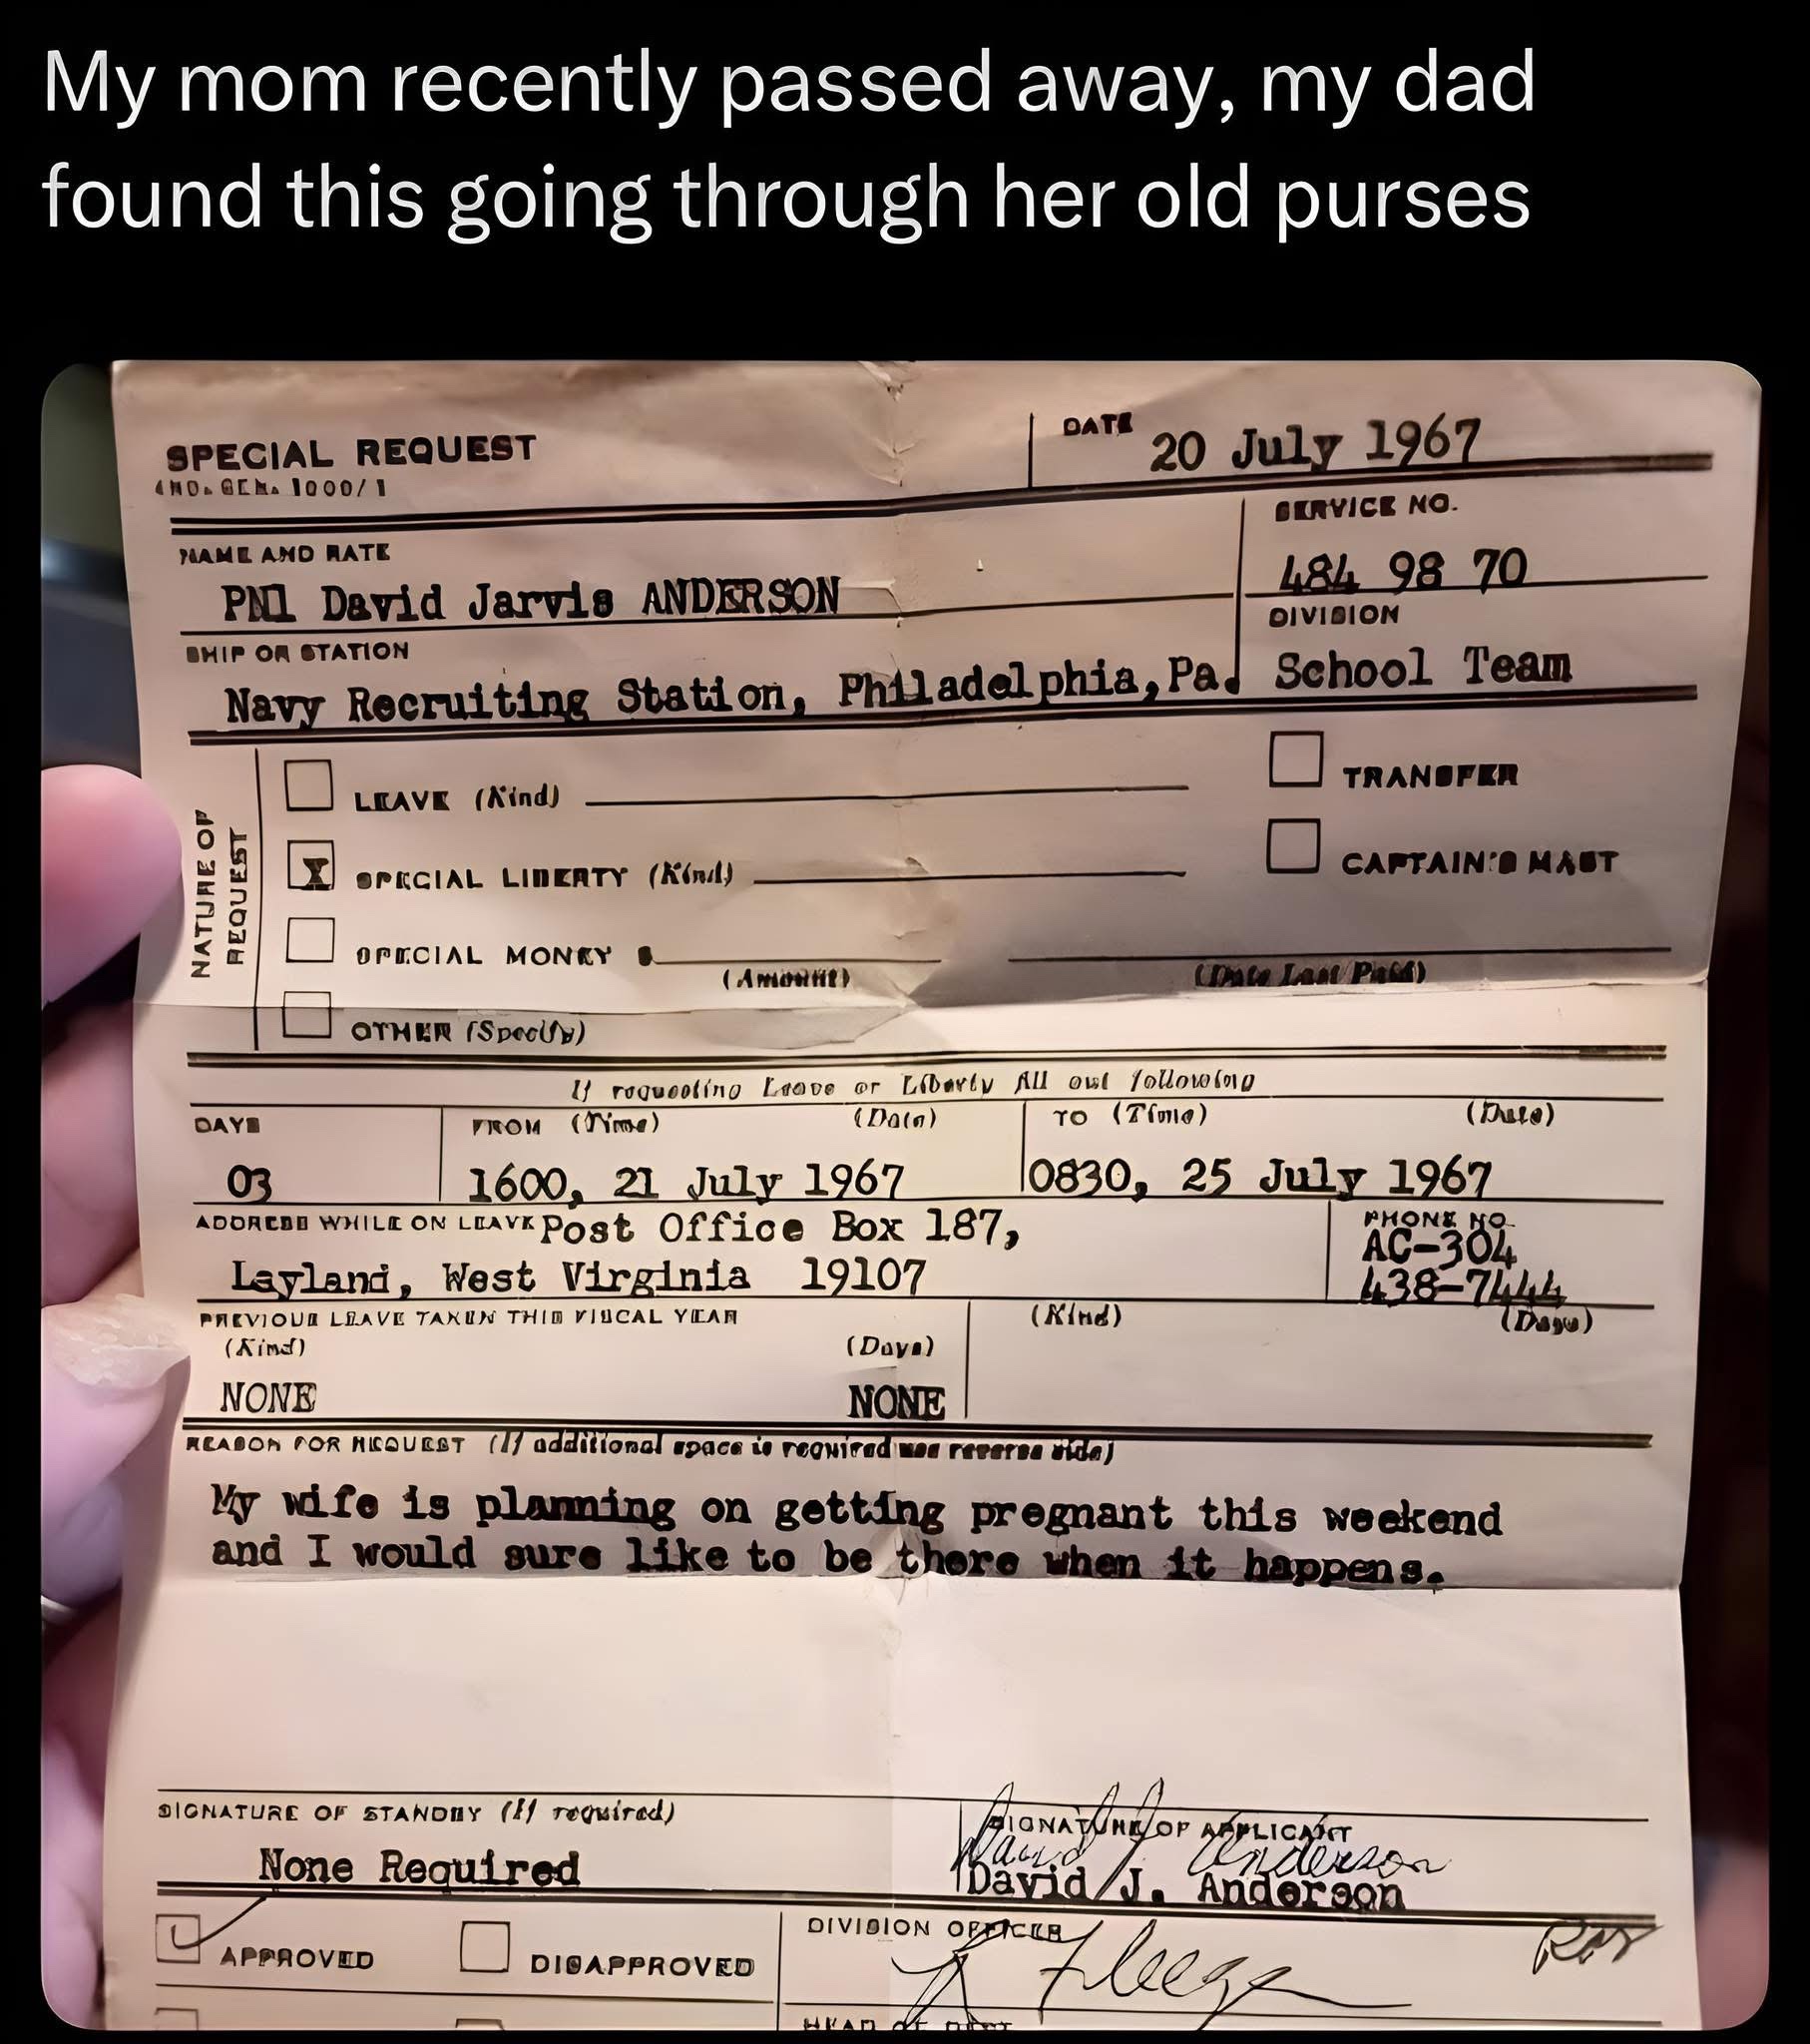 My mom recently passed away, my dad
found this going through her old purses
SPECIAL REQUEST
4ND. GEN. 1000/1
DATE 20 July 1967
NAME AND RATE
PN1 David Jarvis ANDERSON
SERVICE NO.
484 98 70
SHIP OR STATION
Navy Recruiting Station, Philadelphia, Pa.
DIVISION
School Team
NATURE OF
REQUEST
LEAVE (Kind)
TRANSFER
X SPECIAL LIBERTY (Kind)
CAPTAIN'S MAST
SPECIAL MONEY $
(Amount)
(Date Last Paid)
OTHER (Specify)
If requesting Leave or Liberty fill out following
DAYS
FROM (Time) (Date)
TO (Time) (Date)
03
1600, 21 July 1967
0830, 25 July 1967
ADDRESS WHILE ON LEAVE Post Office Box 187,
Layland, West Virginia 19107
PHONE NO.
AC-304
438-7444
PREVIOUS LEAVE TAKEN THIS FISCAL YEAR
(Kind) (Days)
(Kind) (Days)
NONE NONE
REASON FOR REQUEST (If additional space is required use reverse side)
My wife is planning on getting pregnant this weekend
and I would sure like to be there when it happens.
SIGNATURE OF STANDBY (If required)
None Required
SIGNATURE OF APPLICANT
David J. Anderson
David J. Anderson
APPROVED
DISAPPROVED
DIVISION OFFICER